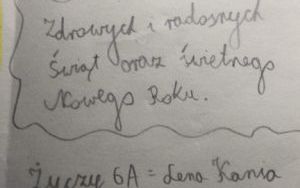 Zdrowych i radosnych
Świąt oraz świetnego
Nowego Roku.
Życzy 6A = Lena Kania